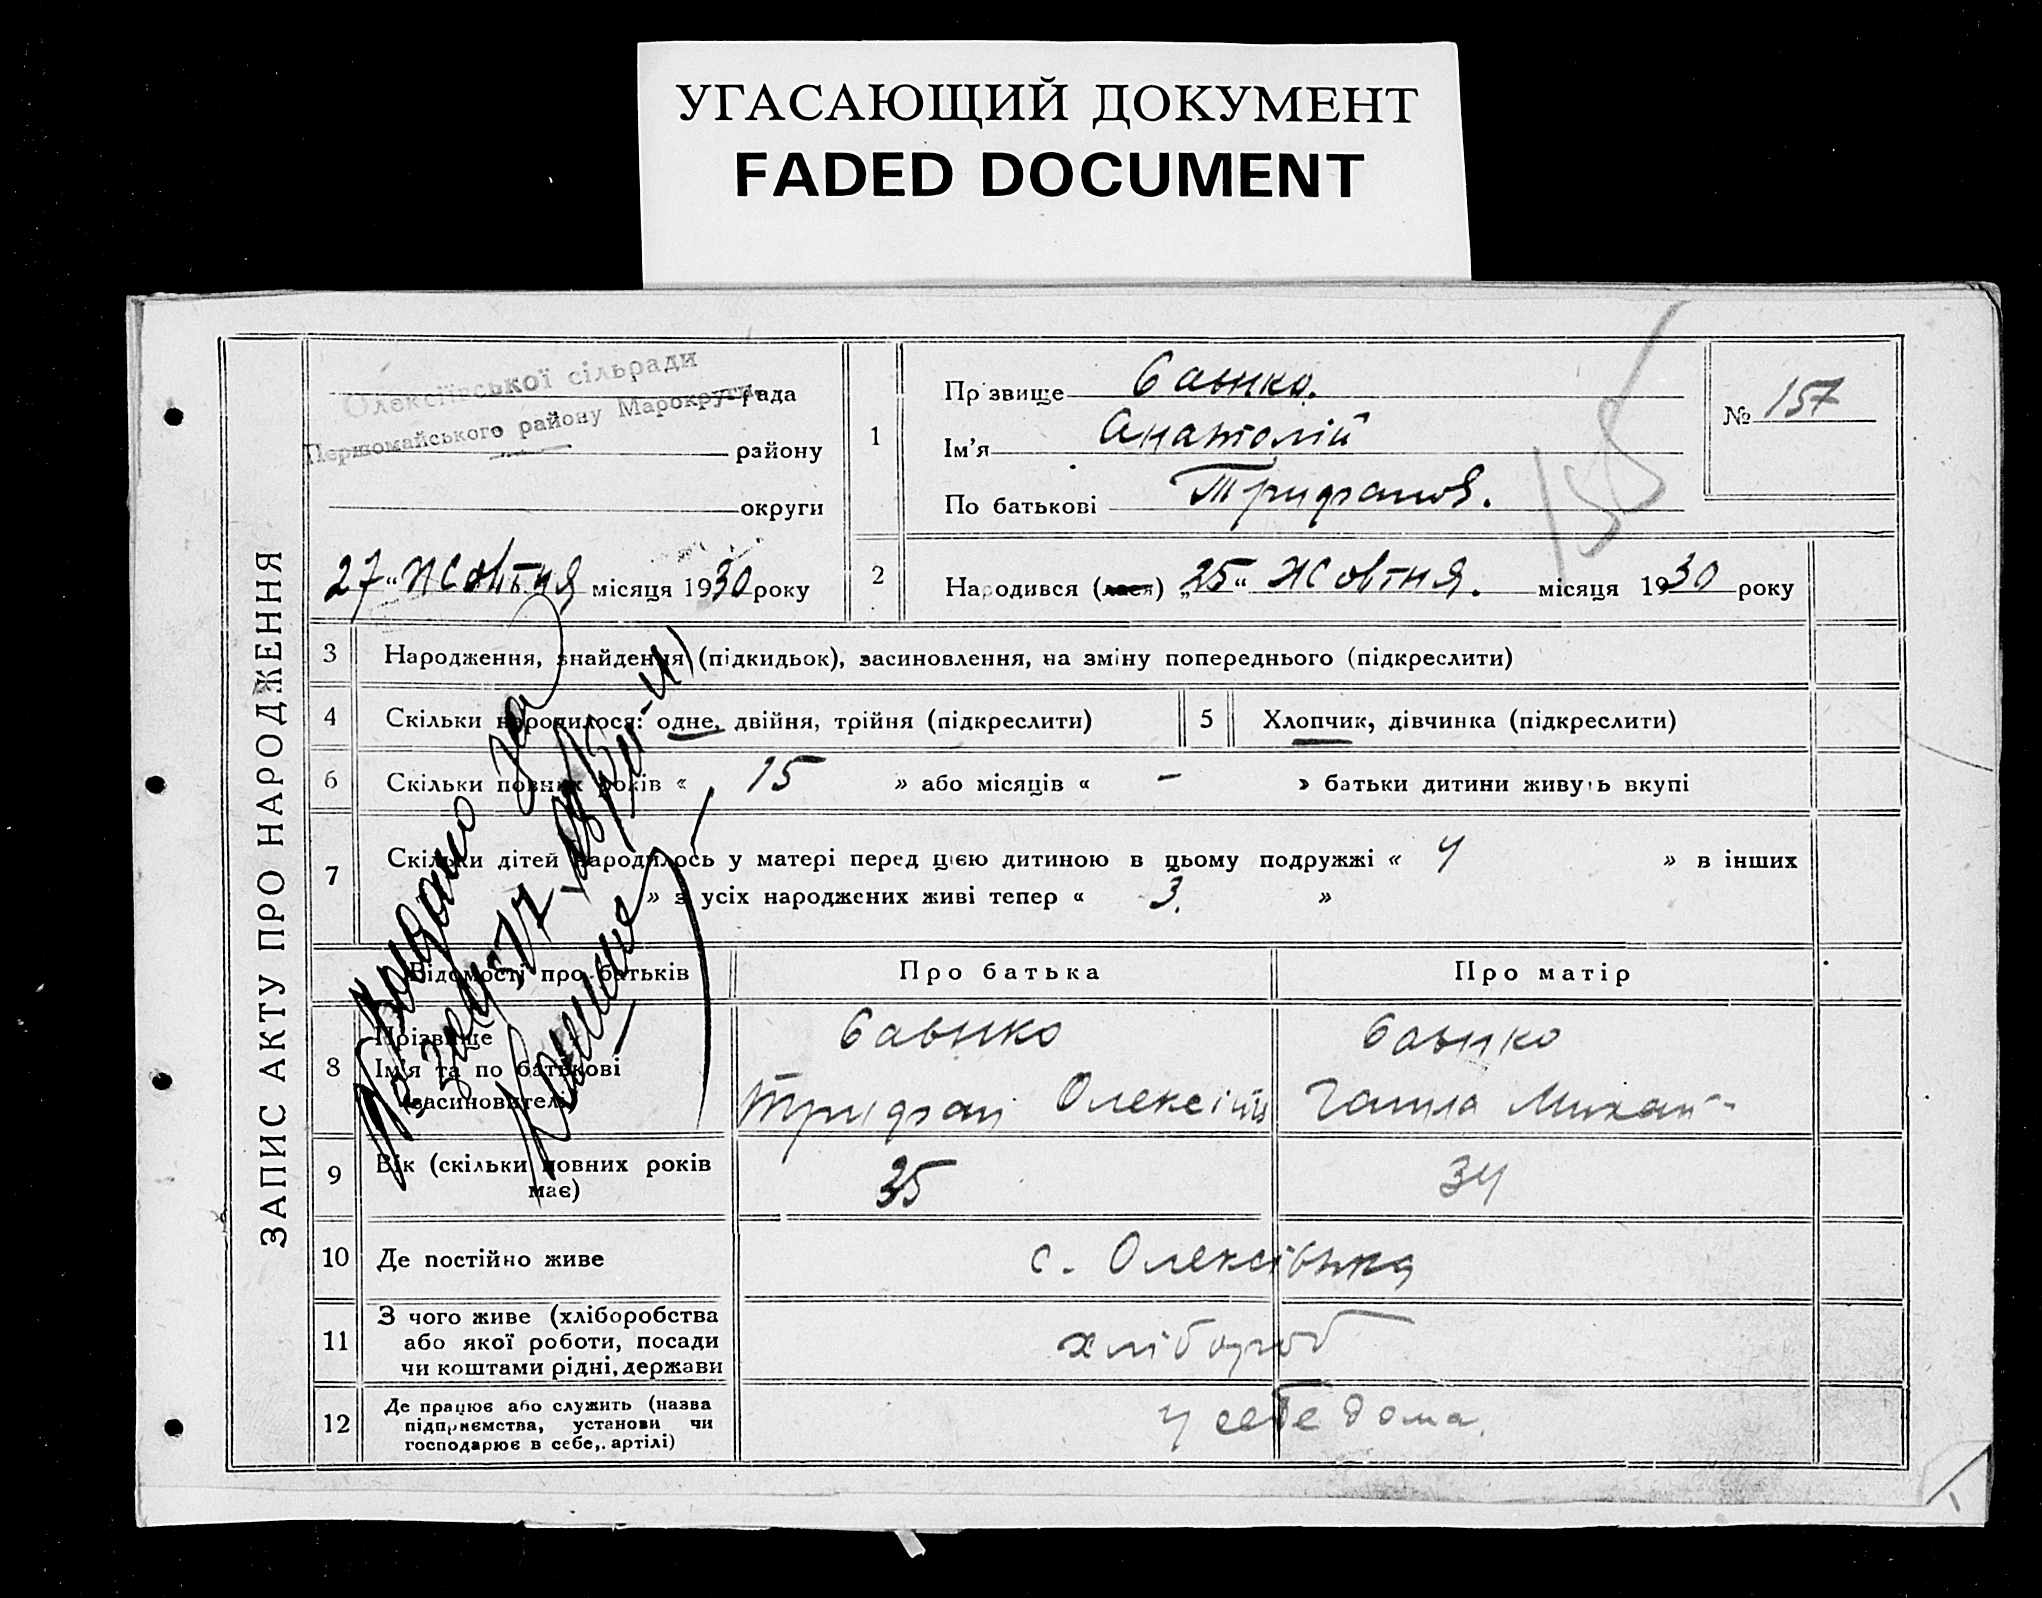 УГАСАЮЩИЙ ДОКУМЕНТ
FADED DOCUMENT
ЗАПИС АКТУ ПРО НАРОДЖЕННЯ
Олексіївської сільради
рада
Першомайського району Марокруги
району
округи
27 " жовтня місяця 1930 року
1
Прізвище Савчко.
Ім'я Анатолій
По батькові Трифанов.
№ 157
158
2
Народився (лася) „25" жовтня. місяця 1930 року
3 Народження, знайдення (підкидьок), засиновлення, на зміну попереднього (підкреслити)
4 Скільки народилося: одне, двійня, трійня (підкреслити)
5 Хлопчик, дівчинка (підкреслити)
6 Скільки повних років « 15 » або місяців « - » батьки дитини живуть вкупі
7 Скільки дітей народилось у матері перед цією дитиною в цьому подружжі « 4 » в інших
» з усіх народжених живі тепер « 3. »
Відомості про батьків
Про батька
Про матір
8 Прізвище
Ім'я та по батькові
(засиновителі)
Савчко
Трифан Олексій
Савчко
Ганна Михай-
9 Вік (скільки повних років має)
35
34
10 Де постійно живе
с. Олексіівка
11 З чого живе (хліборобства
або якої роботи, посади
чи коштами рідні, держави
хлібороб
12 Де працює або служить (назва
підприємства, установи чи
господарює в себе, артілі)
у себе дома.